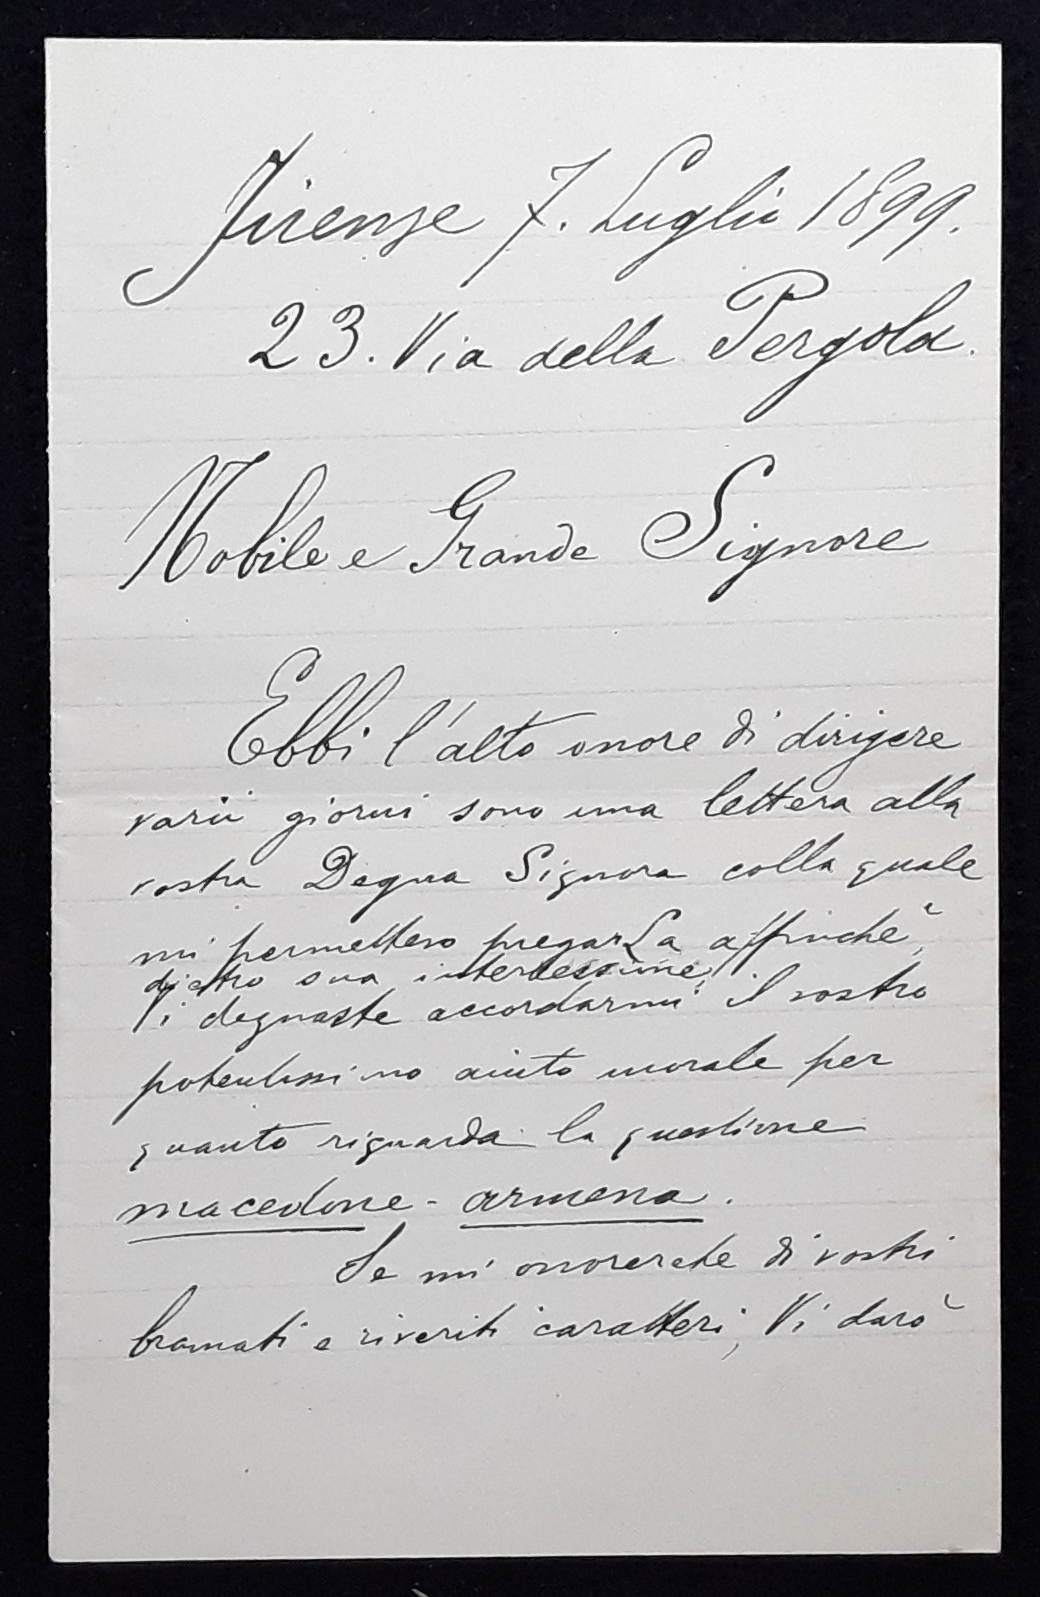 Firenze 7. Luglio 1899.
23. Via della Pergola.
Nobile e Grande Signore
Ebbi l'alto onore di dirigere
varii giorni sono una lettera alla
vostra Degna Signora colla quale
mi permettevo pregarLa affinchè,
dietro sua intercessione,
Vi degnaste accordarmi il vostro
potentissimo aiuto morale per
quanto riguarda la questione
macedone - armena.
Se mi onorerete di vostri
bramati e riveriti caratteri, Vi darò